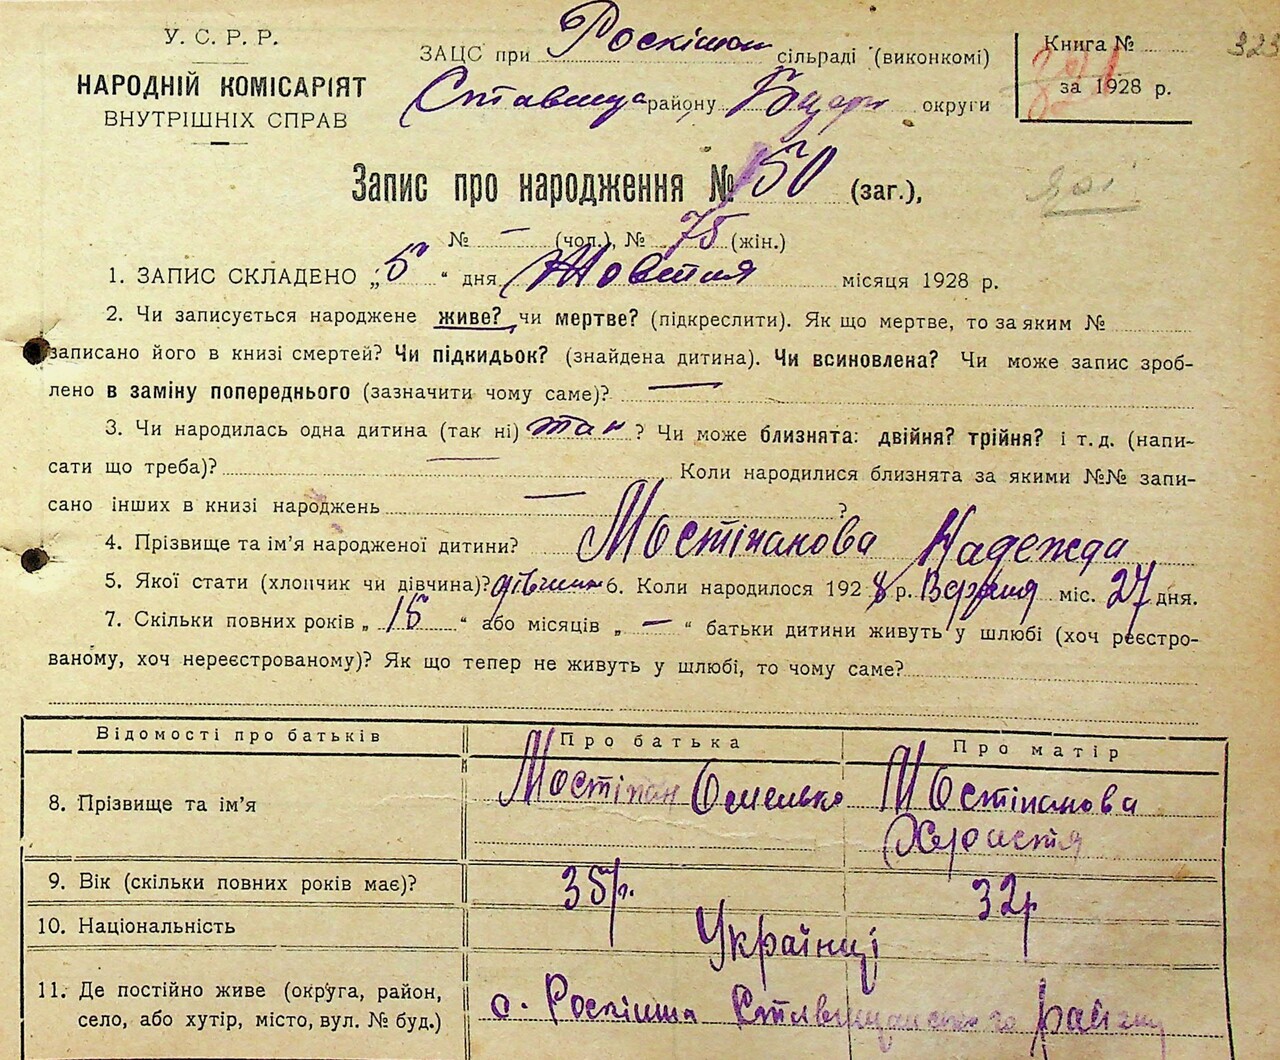 У. С. Р. Р.
НАРОДНІЙ КОМІСАРІЯТ
ВНУТРІШНІХ СПРАВ
ЗАЦС при Роскішан сільраді (виконкомі)
Ставища району Б.церк округи
Книга №
321
за 1928 р.
323
Запис про народження № 150 (заг.),
№ – (чол.), № 75 (жін.)
1. ЗАПИС СКЛАДЕНО „5“ дня Жовтня місяця 1928 р.
2. Чи записується народжене живе? чи мертве? (підкреслити). Як що мертве, то за яким №
записано його в книзі смертей? Чи підкидьок? (знайдена дитина). Чи всиновлена? Чи може запис зроб-
лено в заміну попереднього (зазначити чому саме)? —
3. Чи народилась одна дитина (так ні) так ? Чи може близнята: двійня? трійня? і т. д. (напи-
сати що треба)? — Коли народилися близнята за якими №№ запи-
сано інших в книзі народжень — ?
4. Прізвище та ім'я народженої дитини? Мостіпанова Надежда
5. Якої стати (хлопчик чи дівчина)? дівчина 6. Коли народилося 1928 р. Вересня міс. 27 дня.
7. Скільки повних років „15“ або місяців „—“ батьки дитини живуть у шлюбі (хоч реєстро-
ваному, хоч нереєстрованому)? Як що тепер не живуть у шлюбі, то чому саме?
Відомості про батьків Про батька Про матір
8. Прізвище та ім'я Мостіпан Омелько Мостіпанова
Христя
9. Вік (скільки повних років має)? 35 р. 32 р
10. Національність Українці
11. Де постійно живе (округа, район,
село, або хутір, місто, вул. № буд.) с. Роскішна Ставищанського району